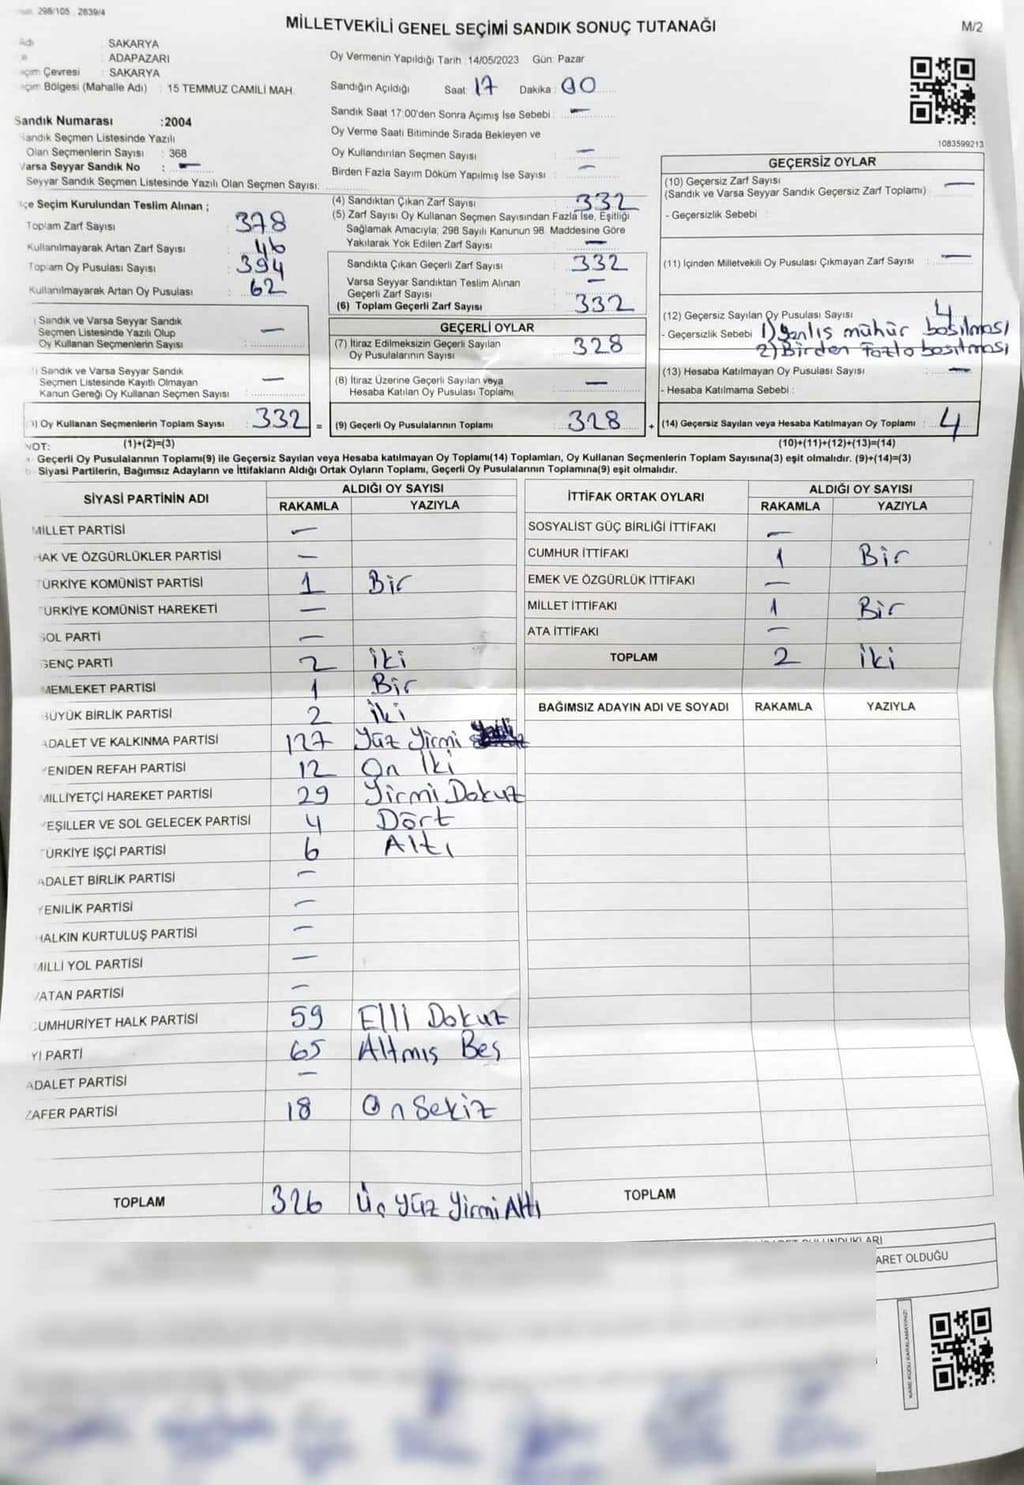 298/105 2839/4
MİLLETVEKİLİ GENEL SEÇİMİ SANDIK SONUÇ TUTANAĞI
M/2
SAKARYA
ADAPAZARI
Çevresi : SAKARYA
Bölgesi (Mahalle Adı) : 15 TEMMUZ CAMİLİ MAH.
Sandık Numarası :2004
Sandık Seçmen Listesinde Yazılı
Olan Seçmenlerin Sayısı : 368
Varsa Seyyar Sandık No : —
Seyyar Sandık Seçmen Listesinde Yazılı Olan Seçmen Sayısı:
Oy Vermenin Yapıldığı Tarih :14/05/2023 Gün: Pazar
Sandığın Açıldığı Saat: 17 Dakika : 00
Sandık Saat 17:00'den Sonra Açımış İse Sebebi : —
Oy Verme Saati Bitiminde Sırada Bekleyen ve
Oy Kullandırılan Seçmen Sayısı : —
Birden Fazla Sayım Döküm Yapılmış İse Sayısı : —
1083599213
İlçe Seçim Kurulundan Teslim Alınan ;
Toplam Zarf Sayısı : 378
Kullanılmayarak Artan Zarf Sayısı : 46
Toplam Oy Pusulası Sayısı : 394
Kullanılmayarak Artan Oy Pusulası : 62
Sandık ve Varsa Seyyar Sandık
Seçmen Listesinde Yazılı Olup
Oy Kullanan Seçmenlerin Sayısı : —
Sandık ve Varsa Seyyar Sandık
Seçmen Listesinde Kayıtlı Olmayan
Kanun Gereği Oy Kullanan Seçmen Sayısı : —
Oy Kullanan Seçmenlerin Toplam Sayısı : 332 =
(1)+(2)=(3)
(4) Sandıktan Çıkan Zarf Sayısı : 332
(5) Zarf Sayısı Oy Kullanan Seçmen Sayısından Fazla İse, Eşitliği
Sağlamak Amacıyla; 298 Sayılı Kanunun 98. Maddesine Göre
Yakılarak Yok Edilen Zarf Sayısı : —
Sandıkta Çıkan Geçerli Zarf Sayısı : 332
Varsa Seyyar Sandıktan Teslim Alınan
Geçerli Zarf Sayısı : —
(6) Toplam Geçerli Zarf Sayısı : 332
GEÇERLİ OYLAR
(7) İtiraz Edilmeksizin Geçerli Sayılan
Oy Pusulalarının Sayısı : 328
(8) İtiraz Üzerine Geçerli Sayılan veya
Hesaba Katılan Oy Pusulası Toplamı : —
(9) Geçerli Oy Pusulalarının Toplamı : 328 +
GEÇERSİZ OYLAR
(10) Geçersiz Zarf Sayısı : —
(Sandık ve Varsa Seyyar Sandık Geçersiz Zarf Toplamı)
- Geçersizlik Sebebi :
(11) İçinden Milletvekili Oy Pusulası Çıkmayan Zarf Sayısı : —
(12) Geçersiz Sayılan Oy Pusulası Sayısı : 4
- Geçersizlik Sebebi : 1) Yanlış mühür basılması
2) Birden Fazla basılması
(13) Hesaba Katılmayan Oy Pusulası Sayısı : —
- Hesaba Katılmama Sebebi :
(14) Geçersiz Sayılan veya Hesaba Katılmayan Oy Toplamı : 4
(10)+(11)+(12)+(13)=(14)
NOT:
Geçerli Oy Pusulalarının Toplamı(9) ile Geçersiz Sayılan veya Hesaba katılmayan Oy Toplamı(14) Toplamları, Oy Kullanan Seçmenlerin Toplam Sayısına(3) eşit olmalıdır. (9)+(14)=(3)
Siyasi Partilerin, Bağımsız Adayların ve İttifakların Aldığı Ortak Oyların Toplamı, Geçerli Oy Pusulalarının Toplamına(9) eşit olmalıdır.
SİYASİ PARTİNİN ADI ALDIĞI OY SAYISI
RAKAMLA YAZIYLA
MİLLET PARTİSİ —
HAK VE ÖZGÜRLÜKLER PARTİSİ —
TÜRKİYE KOMÜNİST PARTİSİ 1 Bir
TÜRKİYE KOMÜNİST HAREKETİ —
SOL PARTİ —
GENÇ PARTİ 2 İki
MEMLEKET PARTİSİ 1 Bir
BÜYÜK BİRLİK PARTİSİ 2 İki
ADALET VE KALKINMA PARTİSİ 127 Yüz Yirmi
YENİDEN REFAH PARTİSİ 12 On İki
MİLLİYETÇİ HAREKET PARTİSİ 29 Yirmi Dokuz
YEŞİLLER VE SOL GELECEK PARTİSİ 4 Dört
TÜRKİYE İŞÇİ PARTİSİ 6 Altı
ADALET BİRLİK PARTİSİ —
YENİLİK PARTİSİ —
HALKIN KURTULUŞ PARTİSİ —
MİLLİ YOL PARTİSİ —
VATAN PARTİSİ —
CUMHURİYET HALK PARTİSİ 59 Elli Dokuz
İYİ PARTİ 65 Altmış Beş
ADALET PARTİSİ —
ZAFER PARTİSİ 18 On Sekiz
TOPLAM 326 Üç Yüz Yirmi Altı
İTTİFAK ORTAK OYLARI ALDIĞI OY SAYISI
RAKAMLA YAZIYLA
SOSYALİST GÜÇ BİRLİĞİ İTTİFAKI —
CUMHUR İTTİFAKI 1 Bir
EMEK VE ÖZGÜRLÜK İTTİFAKI —
MİLLET İTTİFAKI 1 Bir
ATA İTTİFAKI —
TOPLAM 2 İki
BAĞIMSIZ ADAYIN ADI VE SOYADI RAKAMLA YAZIYLA
TOPLAM
ARET OLDUĞU
KARE KODU KARALAMAYINIZ!